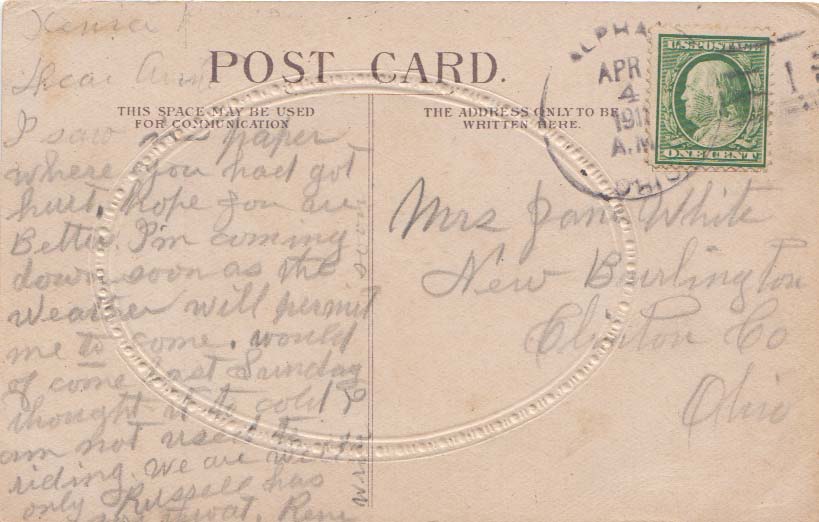 Xenia
POST CARD.
Dear Aunt
THIS SPACE MAY BE USED
FOR COMMUNICATION
I saw in paper
where you had got
hurt, hope you are
Better. I'm coming
down soon as the
Weather will permit
me to come. would
of come last Sunday
thought it to cold I
am not used to
riding. we are well
only Russell has
throat. Rene
soon
write
THE ADDRESS ONLY TO BE
WRITTEN HERE.
Mrs Jane White
New Burlington
Clinton Co
Ohio
ALPHA
APR
4
1911
A.M.
OHIO
1
U.S. POSTAGE
ONE CENT